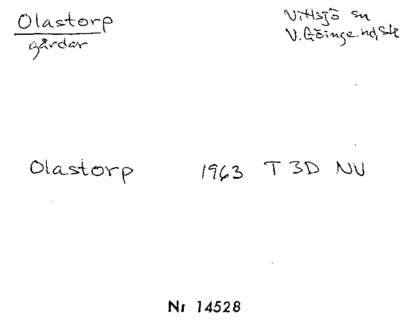 Olastorp
gårdar
Vittsjö sn
V. Göinge hd, Sk
Olastorp 1963 T 3D NV
Nr 14528